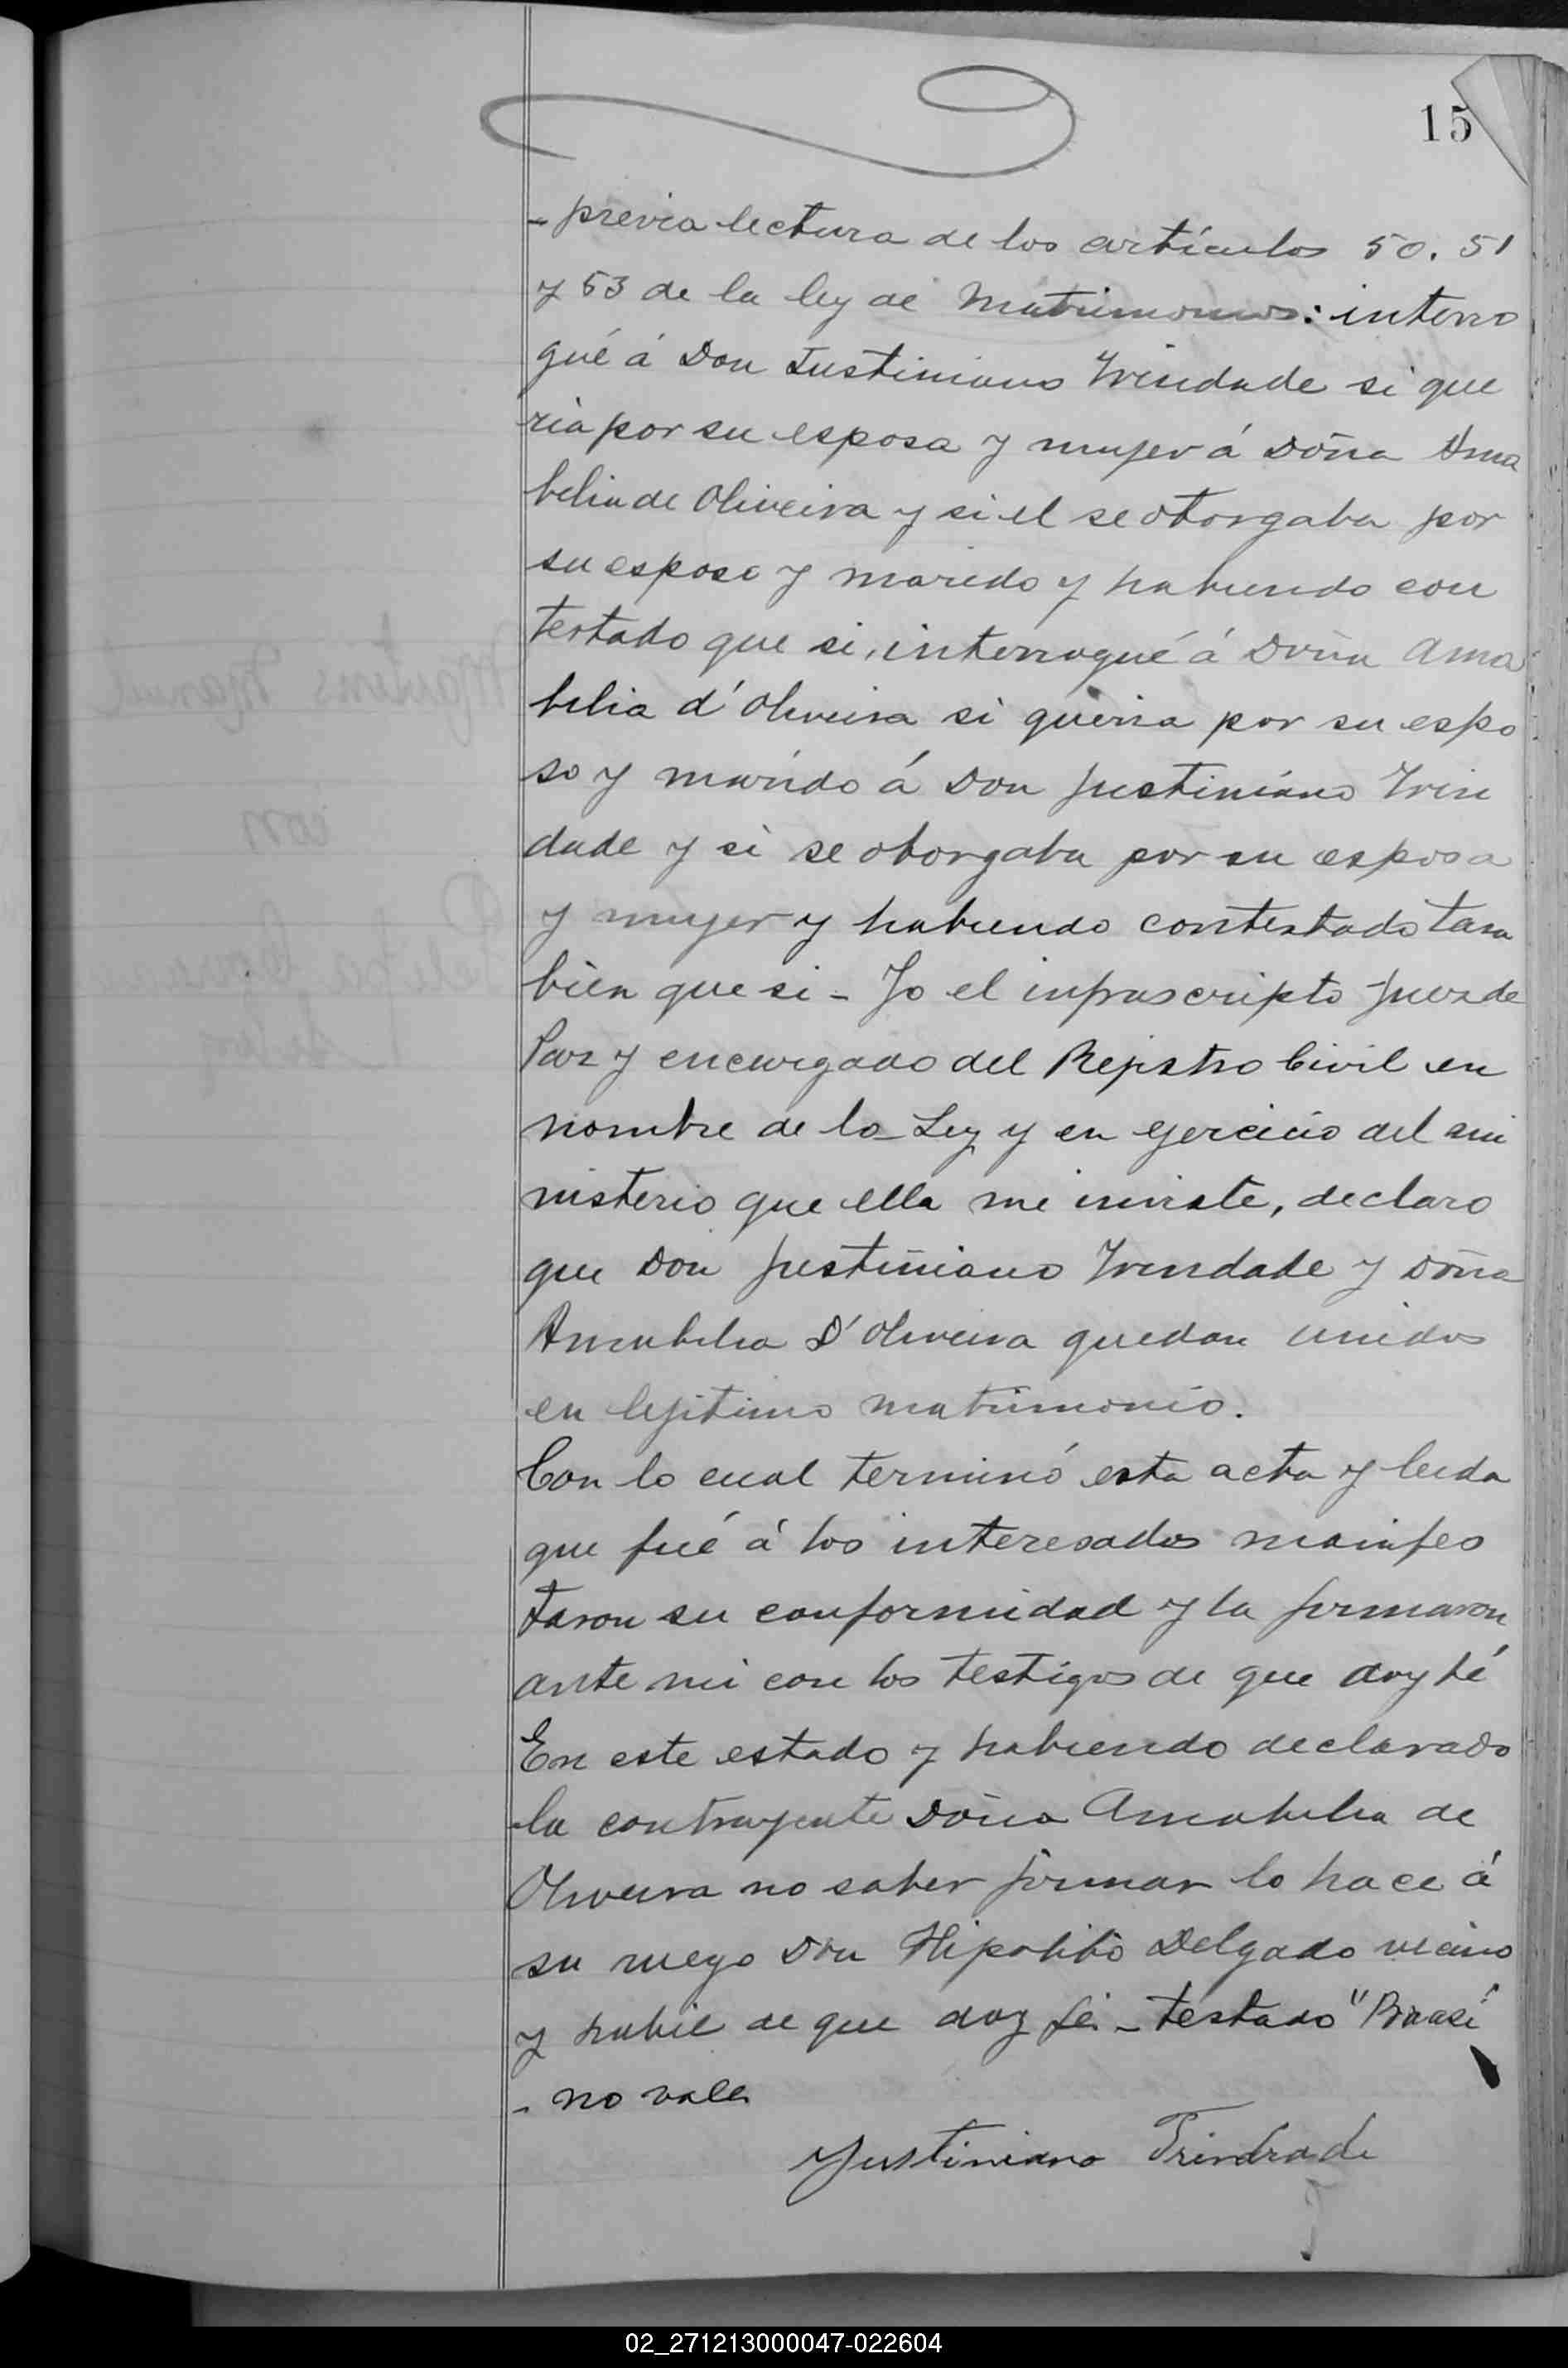 15
- previa lectura de los artículos 50. 51
y 53 de la ley de Matrimonios: interro
gué á Don Justiniano Trindade si que
ria por su esposa y mujer á Doña Ama
belia de Oliveira y si el se otorgaba por
su esposo y marido y habiendo con
testado que si, interrogué á Doña Ama
belia d'Oliveira si queria por su espo
so y marido á Don Justiniano Trin
dade y si se otorgaba por su esposa
y mujer y habiendo contestado tam
bien que si - Yo el infrascripto Juez de
Paz y encargado del Rejistro Civil en
nombre de la Ley y en ejercicio del mi
nisterio que ella me inviste, declaro
que Don Justiniano Trindade y Doña
Amabelia D'Oliveira quedan unidos
en lejitimo matrimonio.
Con lo cual terminó esta acta y leida
que fué á los interesados manifes
taron su conformidad y la firmaron
ante mi con los testigos de que doy fé
En este estado y habiendo declarado
la contrayente Doña Amabelia de
Oliveira no saber firmar lo hace á
su ruego Don Hipolito Delgado vecino
y habil de que doy fé - testado "
- no vale
Justiniano Trindrade
02_271213000047-022604